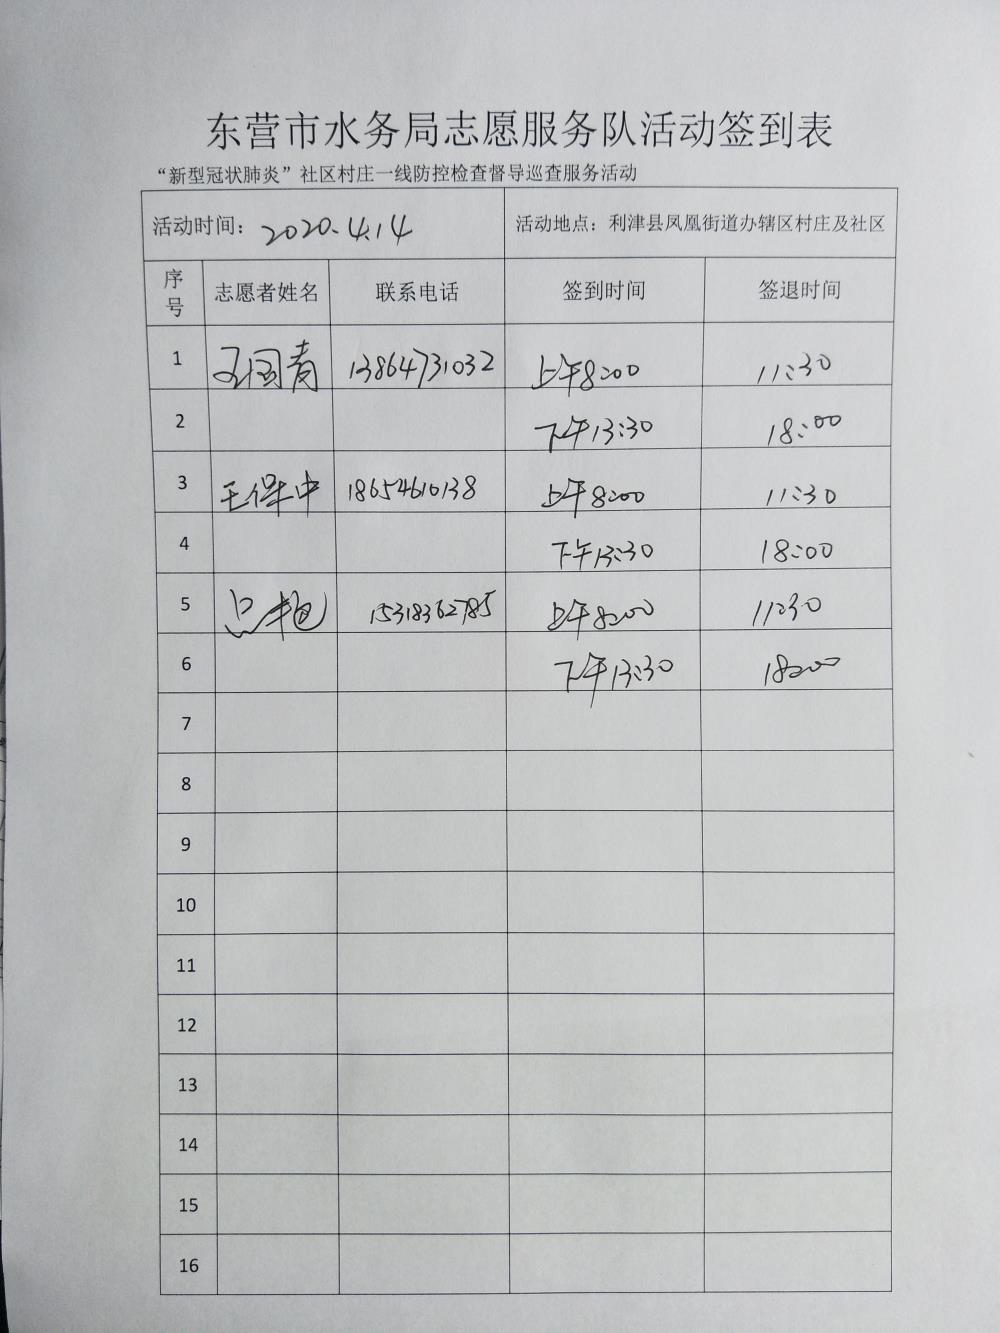 东营市水务局志愿服务队活动签到表
“新型冠状肺炎”社区村庄一线防控检查督导巡查服务活动
活动时间：2020.4.14 活动地点：利津县凤凰街道办辖区村庄及社区
序号 志愿者姓名 联系电话 签到时间 签退时间
1 王国青 13864731032 上午8:00 11:30
2 下午13:30 18:00
3 王保中 18654610138 上午8:00 11:30
4 下午13:30 18:00
5 15318362785 上午8:00 11:30
6 下午13:30 18:00
7
8
9
10
11
12
13
14
15
16